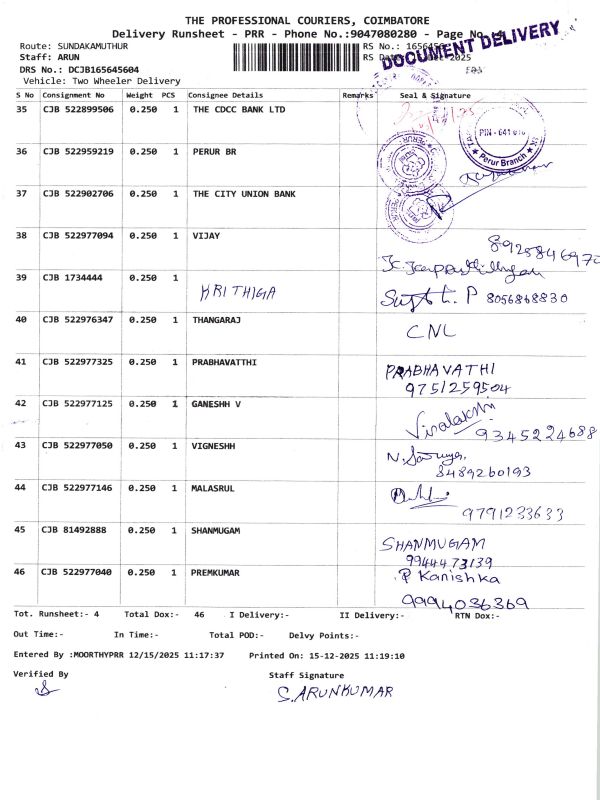 THE PROFESSIONAL COURIERS, COIMBATORE
Delivery Runsheet - PRR - Phone No.:9047080280 - Page No.:4
DOCUMENT DELIVERY
Route: SUNDAKAMUTHUR
Staff: ARUN
DRS No.: DCJB165645604
Vehicle: Two Wheeler Delivery
S No Consignment No Weight PCS Consignee Details Remarks Seal & Signature
35 CJB 522899506 0.250 1 THE CDCC BANK LTD
PIN - 641 010
Perur Branch
36 CJB 522959219 0.250 1 PERUR BR
37 CJB 522902706 0.250 1 THE CITY UNION BANK
38 CJB 522977094 0.250 1 VIJAY
39 CJB 1734444 0.250 1 KRITHIGA 8056868830
40 CJB 522976347 0.250 1 THANGARAJ CNL
41 CJB 522977325 0.250 1 PRABHAVATTHI PRABHAVATHI
9751259504
42 CJB 522977125 0.250 1 GANESHH V Visalakshi
9345224688
43 CJB 522977050 0.250 1 VIGNESHH
8489260193
44 CJB 522977146 0.250 1 MALASRUL
9791233633
45 CJB 81492888 0.250 1 SHANMUGAM SHANMUGAM
9944473139
46 CJB 522977040 0.250 1 PREMKUMAR P Kanishka
9994036369
Tot. Runsheet:- 4 Total Dox:- 46 I Delivery:- II Delivery:- RTN Dox:-
Out Time:- In Time:- Total POD:- Delvy Points:-
Entered By :MOORTHYPRR 12/15/2025 11:17:37 Printed On: 15-12-2025 11:19:10
Verified By Staff Signature
S. ARUNKUMAR